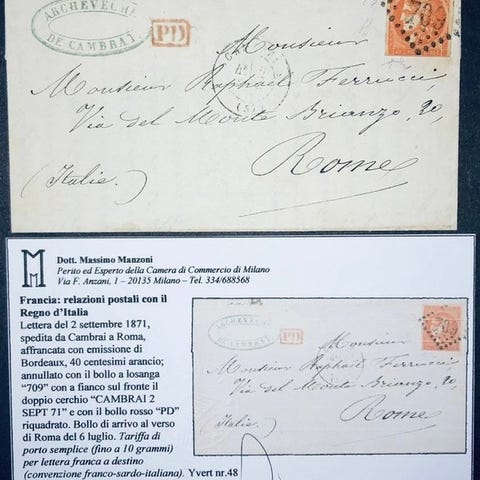 ARCHEVÊCHÉ
DE CAMBRAI
PD
709
Monsieur
Monsieur Raphaël Ferrucci,
Via del Monte Brianzo, 20,
Rome
(Italie.)
Dott. Massimo Manzoni
Perito ed Esperto della Camera di Commercio di Milano
Via F. Anzani, 1 – 20135 Milano – Tel. 334/688568
Francia: relazioni postali con il
Regno d'Italia
Lettera del 2 settembre 1871,
spedita da Cambrai a Roma,
affrancata con emissione di
Bordeaux, 40 centesimi arancio;
annullato con il bollo a losanga
“709” con a fianco sul fronte il
doppio cerchio “CAMBRAI 2
SEPT 71” e con il bollo rosso “PD”
riquadrato. Bollo di arrivo al verso
di Roma del 6 luglio. Tariffa di
porto semplice (fino a 10 grammi)
per lettera franca a destino
(convenzione franco-sardo-italiana). Yvert nr.48
ARCHEVÊCHÉ
DE CAMBRAI
PD
709
Monsieur
Monsieur Raphaël Ferrucci
Via del Monte Brianzo, 20,
Rome
(Italie.)